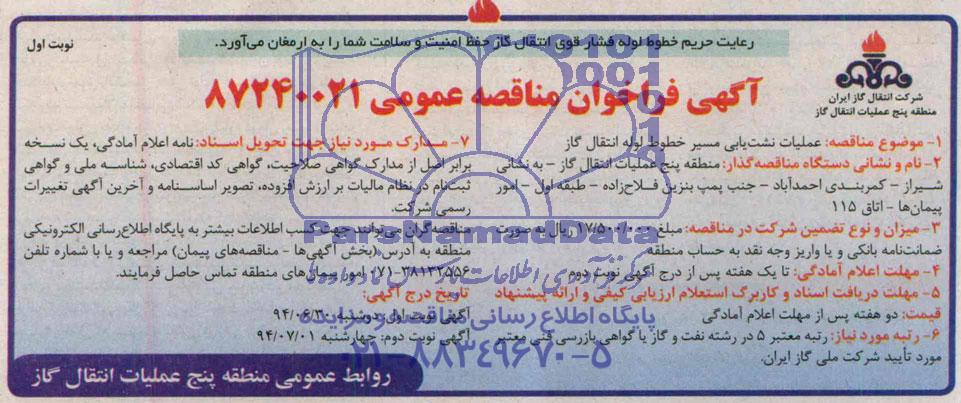 رعایت حریم خطوط لوله فشار قوی انتقال گاز حفظ امنیت و سلامت شما را به ارمغان می‌آورد.
نوبت اول
شرکت انتقال گاز ایران
منطقه پنج عملیات انتقال گاز
آگهی فراخوان مناقصه عمومی ۸۷۲۴۰۰۲۱
۱- موضوع مناقصه: عملیات نشت‌یابی مسیر خطوط لوله انتقال گاز
۲- نام و نشانی دستگاه مناقصه‌گذار: منطقه پنج عملیات انتقال گاز - به نشانی
شیراز - کمربندی احمدآباد - جنب پمپ بنزین فلاح‌زاده - طبقه اول - امور
پیمان‌ها - اتاق ۱۱۵
۳- میزان و نوع تضمین شرکت در مناقصه: مبلغ ۱۷/۵۰۰/۰۰۰ ریال به صورت
ضمانت‌نامه بانکی و یا واریز وجه نقد به حساب منطقه
۴- مهلت اعلام آمادگی: تا یک هفته پس از درج آگهی نوبت دوم
۵- مهلت دریافت اسناد و کاربرگ استعلام ارزیابی کیفی و ارائه پیشنهاد
قیمت: دو هفته پس از مهلت اعلام آمادگی
۶- رتبه مورد نیاز: رتبه معتبر ۵ در رشته نفت و گاز یا گواهی بازرسی فنی معتبر
مورد تأیید شرکت ملی گاز ایران.
۷- مدارک مورد نیاز جهت تحویل اسناد: نامه اعلام آمادگی، یک نسخه
برابر اصل از مدارک گواهی صلاحیت، گواهی کد اقتصادی، شناسه ملی و گواهی
ثبت‌نام در نظام مالیات بر ارزش افزوده، تصویر اساسنامه و آخرین آگهی تغییرات
رسمی شرکت.
مناقصه‌گران می‌توانند جهت کسب اطلاعات بیشتر به پایگاه اطلاع‌رسانی الکترونیکی
منطقه به آدرس (بخش آگهی‌ها - مناقصه‌های پیمان) مراجعه و یا با شماره تلفن
۰۷۱-۳۸۱۳۲۵۵۶ امور پیمان‌های منطقه تماس حاصل فرمایند.
تاریخ درج آگهی:
آگهی نوبت اول: دوشنبه ۹۴/۰۶/۳۰
آگهی نوبت دوم: چهارشنبه ۹۴/۰۷/۰۱
روابط عمومی منطقه پنج عملیات انتقال گاز
ParsNamadData
پایگاه اطلاع رسانی مناقصه و مزایده
۰۲۱-۸۸۳۴۹۶۷۰-۵